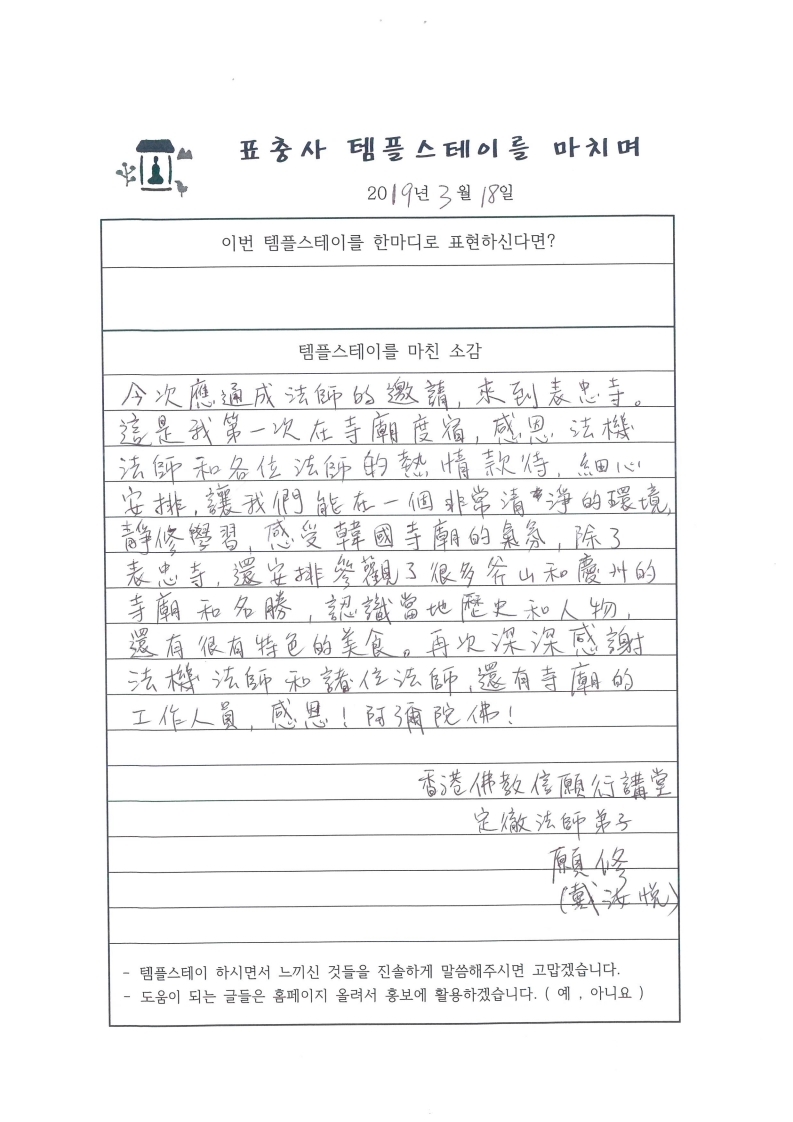 표충사 템플스테이를 마치며
2019년 3월 18일
이번 템플스테이를 한마디로 표현하신다면?
템플스테이를 마친 소감
今次應通成法師的邀請，來到表忠寺。
這是我第一次在寺廟度宿，感恩 法機
法師和各位法師的熱情款待，細心
安排，讓我們能在一個非常清淨的環境，
靜修學習，感受韓國寺廟的氣氛，除了
表忠寺，還安排參觀了很多釜山和慶州的
寺廟和名勝，認識當地歷史和人物，
還有很有特色的美食。再次深深感謝
法機法師和諸位法師，還有寺廟的
工作人員，感恩！阿彌陀佛！
香港佛教信願行講堂
定徹法師弟子
願修
(戴汝悅)
- 템플스테이 하시면서 느끼신 것들을 진솔하게 말씀해주시면 고맙겠습니다.
- 도움이 되는 글들은 홈페이지 올려서 홍보에 활용하겠습니다. ( 예 , 아니요 )